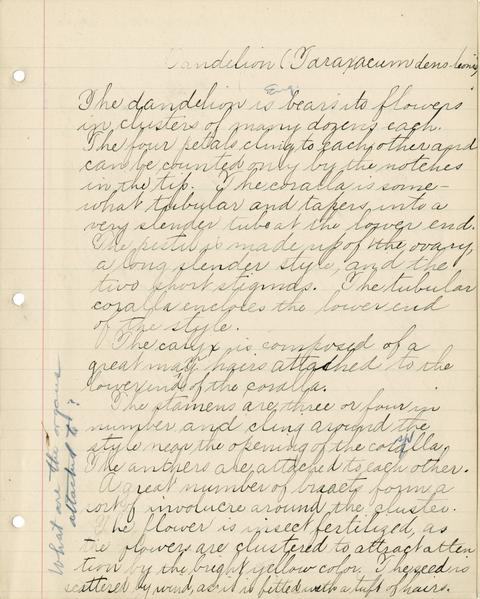 Dandelion (Taraxacum dens-leonis)
The dandelion is bears its flowers
in clusters of many dozens each.
The four petals cling to each other and
can be counted only by the notches
in the tip. The coralla is some-
what tubular and tapers into a
very slender tube at the lower end.
The pistil is made up of the ovary,
a long slender style, and the
two short stigmas. The tubular
coralla encloses the lower end
of the style.
The calyx is composed of a
great many hairs attached to the
lower end of the coralla.
The stamens are three or four in
number and cling around the
style near the opening of the coralla.
The anthers are attached to each other.
A great number of bracts form a
sort of involucre around the cluster.
The flower is insect fertilized, as
the flowers are clustered to attract atten
tion by the bright yellow color. The seed is
scattered by wind, as it is fitted with a tuft of hairs.
What are the organs
attached to?